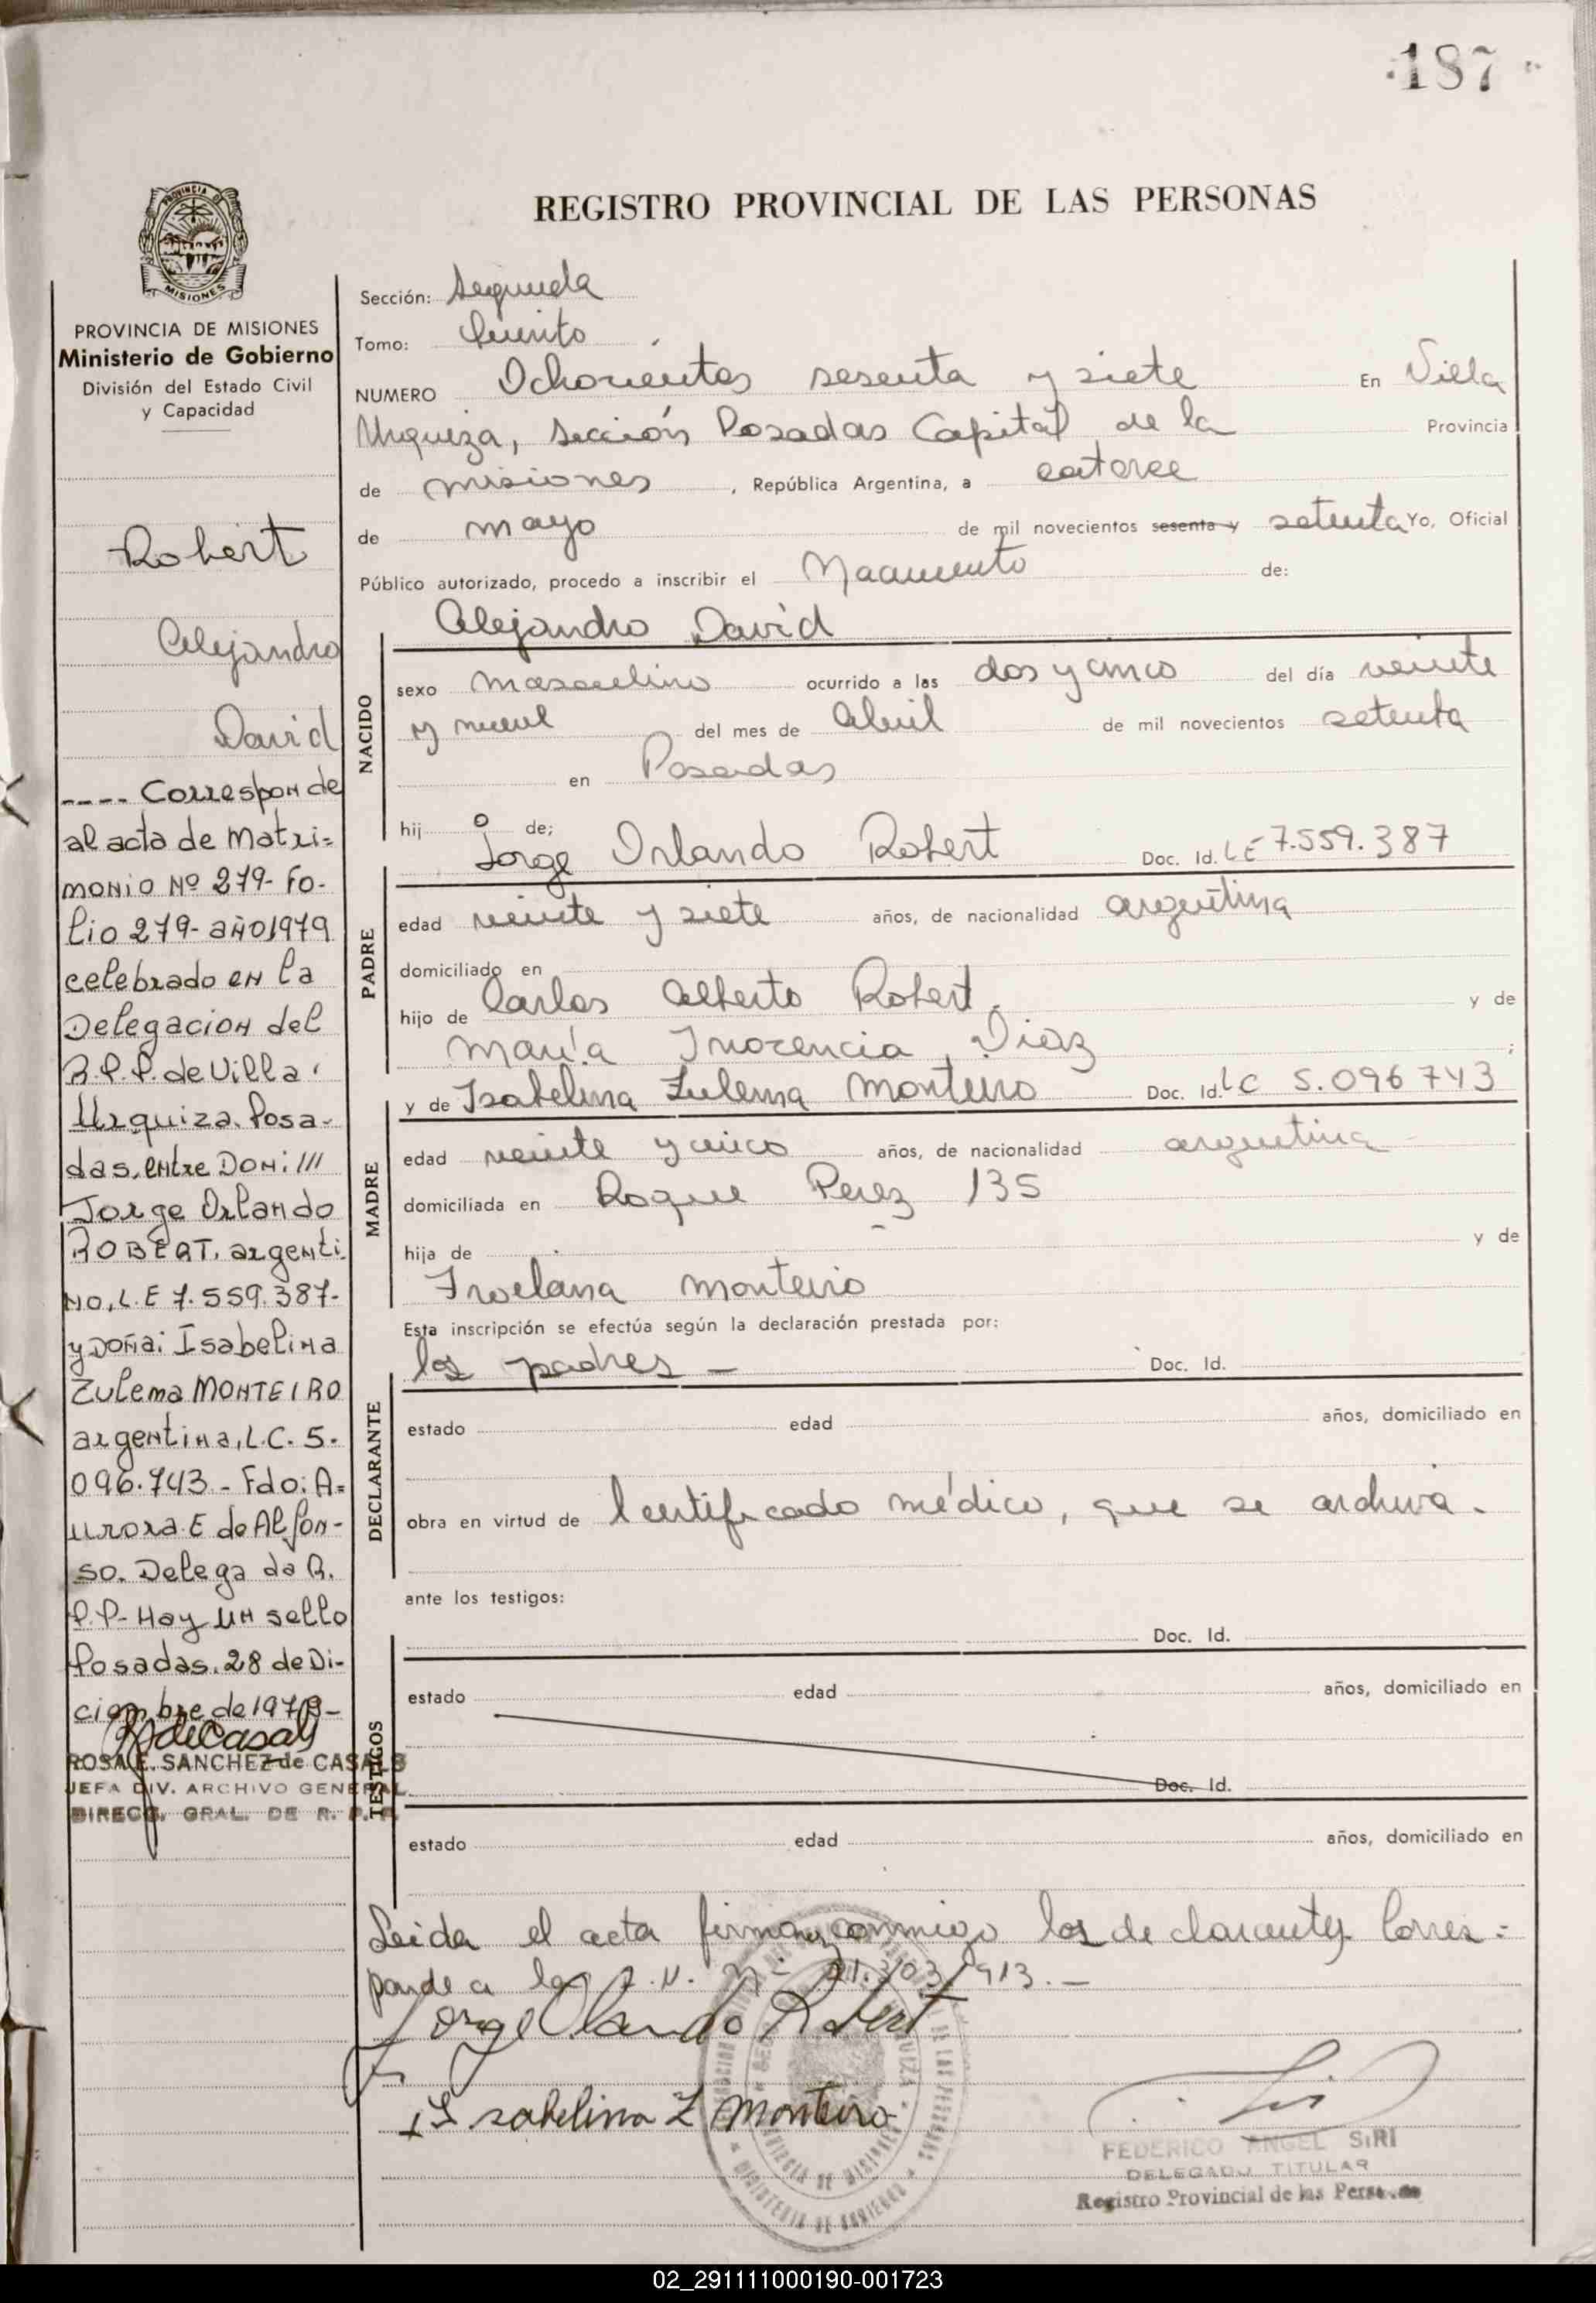 187
REGISTRO PROVINCIAL DE LAS PERSONAS
PROVINCIA DE
MISIONES
PROVINCIA DE MISIONES
Ministerio de Gobierno
División del Estado Civil
y Capacidad
Robert
Alejandro
David
---- Corresponde
al acta de Matri=
monio Nº 279- Fo-
lio 279- año 1979
celebrado en la
Delegacion del
R.P.P. de Villa
Urquiza. Posa-
das, entre DON: ///
Jorge Orlando
ROBERT. argenti
no, L.E 7.559.387-
y DOÑA: Isabelina
Zulema MONTEIRO
argentina, L.C. 5.
096.743 - Fdo: A=
urora E de Alfon-
so. Delega da R.
P.P- Hay un sello
Posadas. 28 de Di-
ciembre de 1979-
ROSA E. SANCHEZ de CASALS
JEFA DIV. ARCHIVO GENERAL
DIRECC. GRAL. DE R. P. P.
Sección: Segunda
Tomo: Quinto
NUMERO Ochocientos sesenta y siete En Villa
Urquiza, sección Posadas Capital de la Provincia
de misiones , República Argentina, a catorce
de mayo de mil novecientos sesenta y setenta Yo, Oficial
Público autorizado, procedo a inscribir el Nacimiento de:
Alejandro David
NACIDO
sexo masculino ocurrido a las dos y cinco del día veinte
y nueve del mes de Abril de mil novecientos setenta
en Posadas
hij o de;
Jorge Orlando Robert Doc. Id. LE 7.559.387
PADRE
edad veinte y siete años, de nacionalidad argentina
domiciliado en
hijo de Carlos Alberto Robert y de
María Inocencia Diaz ;
y de Isabelina Zulema Monteiro Doc. Id. LC 5.096743
MADRE
edad veinte y cinco años, de nacionalidad argentina
domiciliada en Roque Perez 135
hija de y de
Froelana Monteiro
Esta inscripción se efectúa según la declaración prestada por:
los padres — Doc. Id.
DECLARANTE
estado edad años, domiciliado en
obra en virtud de Certificado médico, que se archiva.
ante los testigos:
Doc. Id.
TESTIGOS
estado edad años, domiciliado en
Doc. Id.
estado edad años, domiciliado en
Leida el acta firman conmigo los declarantes Corres=
ponde a la
Jorge Orlando Robert
Isabelina Z Monteiro
FEDERICO ANGEL SIRI
DELEGADO TITULAR
Registro Provincial de las Personas
02_291111000190-001723